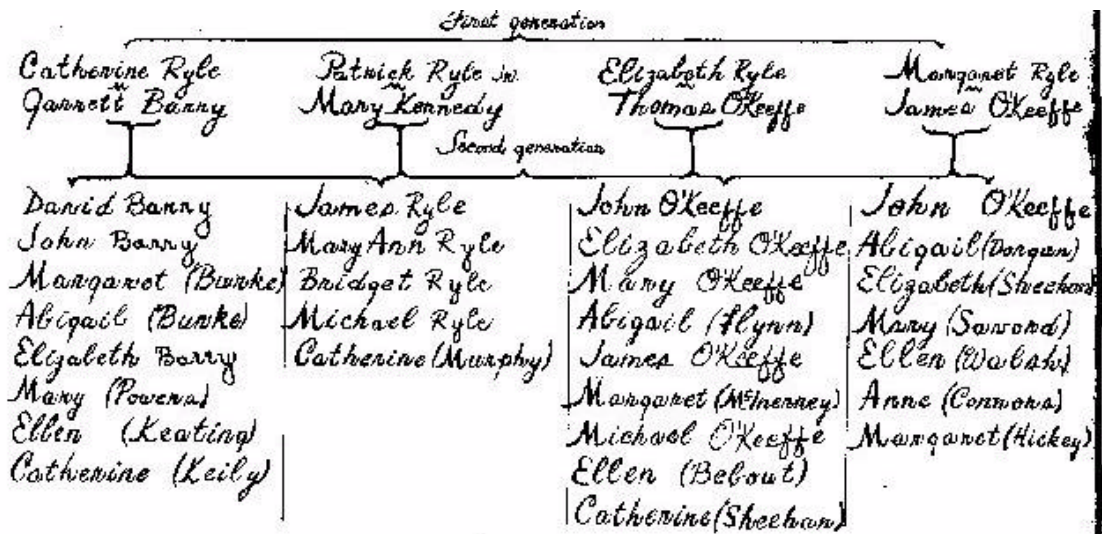 First generation
Catherine Ryle
Garrett Barry
Patrick Ryle Jr.
Mary Kennedy
Elizabeth Ryle
Thomas O'Keeffe
Margaret Ryle
James O'Keeffe
Second generation
David Barry
John Barry
Margaret (Burke)
Abigail (Burke)
Elizabeth Barry
Mary (Powers)
Ellen (Keating)
Catherine (Keily)
James Ryle
Mary Ann Ryle
Bridget Ryle
Michael Ryle
Catherine (Murphy)
John O'Keeffe
Elizabeth O'Keeffe
Mary O'Keeffe
Abigail (Flynn)
James O'Keeffe
Margaret (McInerney)
Michael O'Keeffe
Ellen (Bebout)
Catherine (Sheehan)
John O'Keeffe
Abigail (Dorgan)
Elizabeth (Sheehan)
Mary (Saword)
Ellen (Walsh)
Anne (Connors)
Margaret (Hickey)